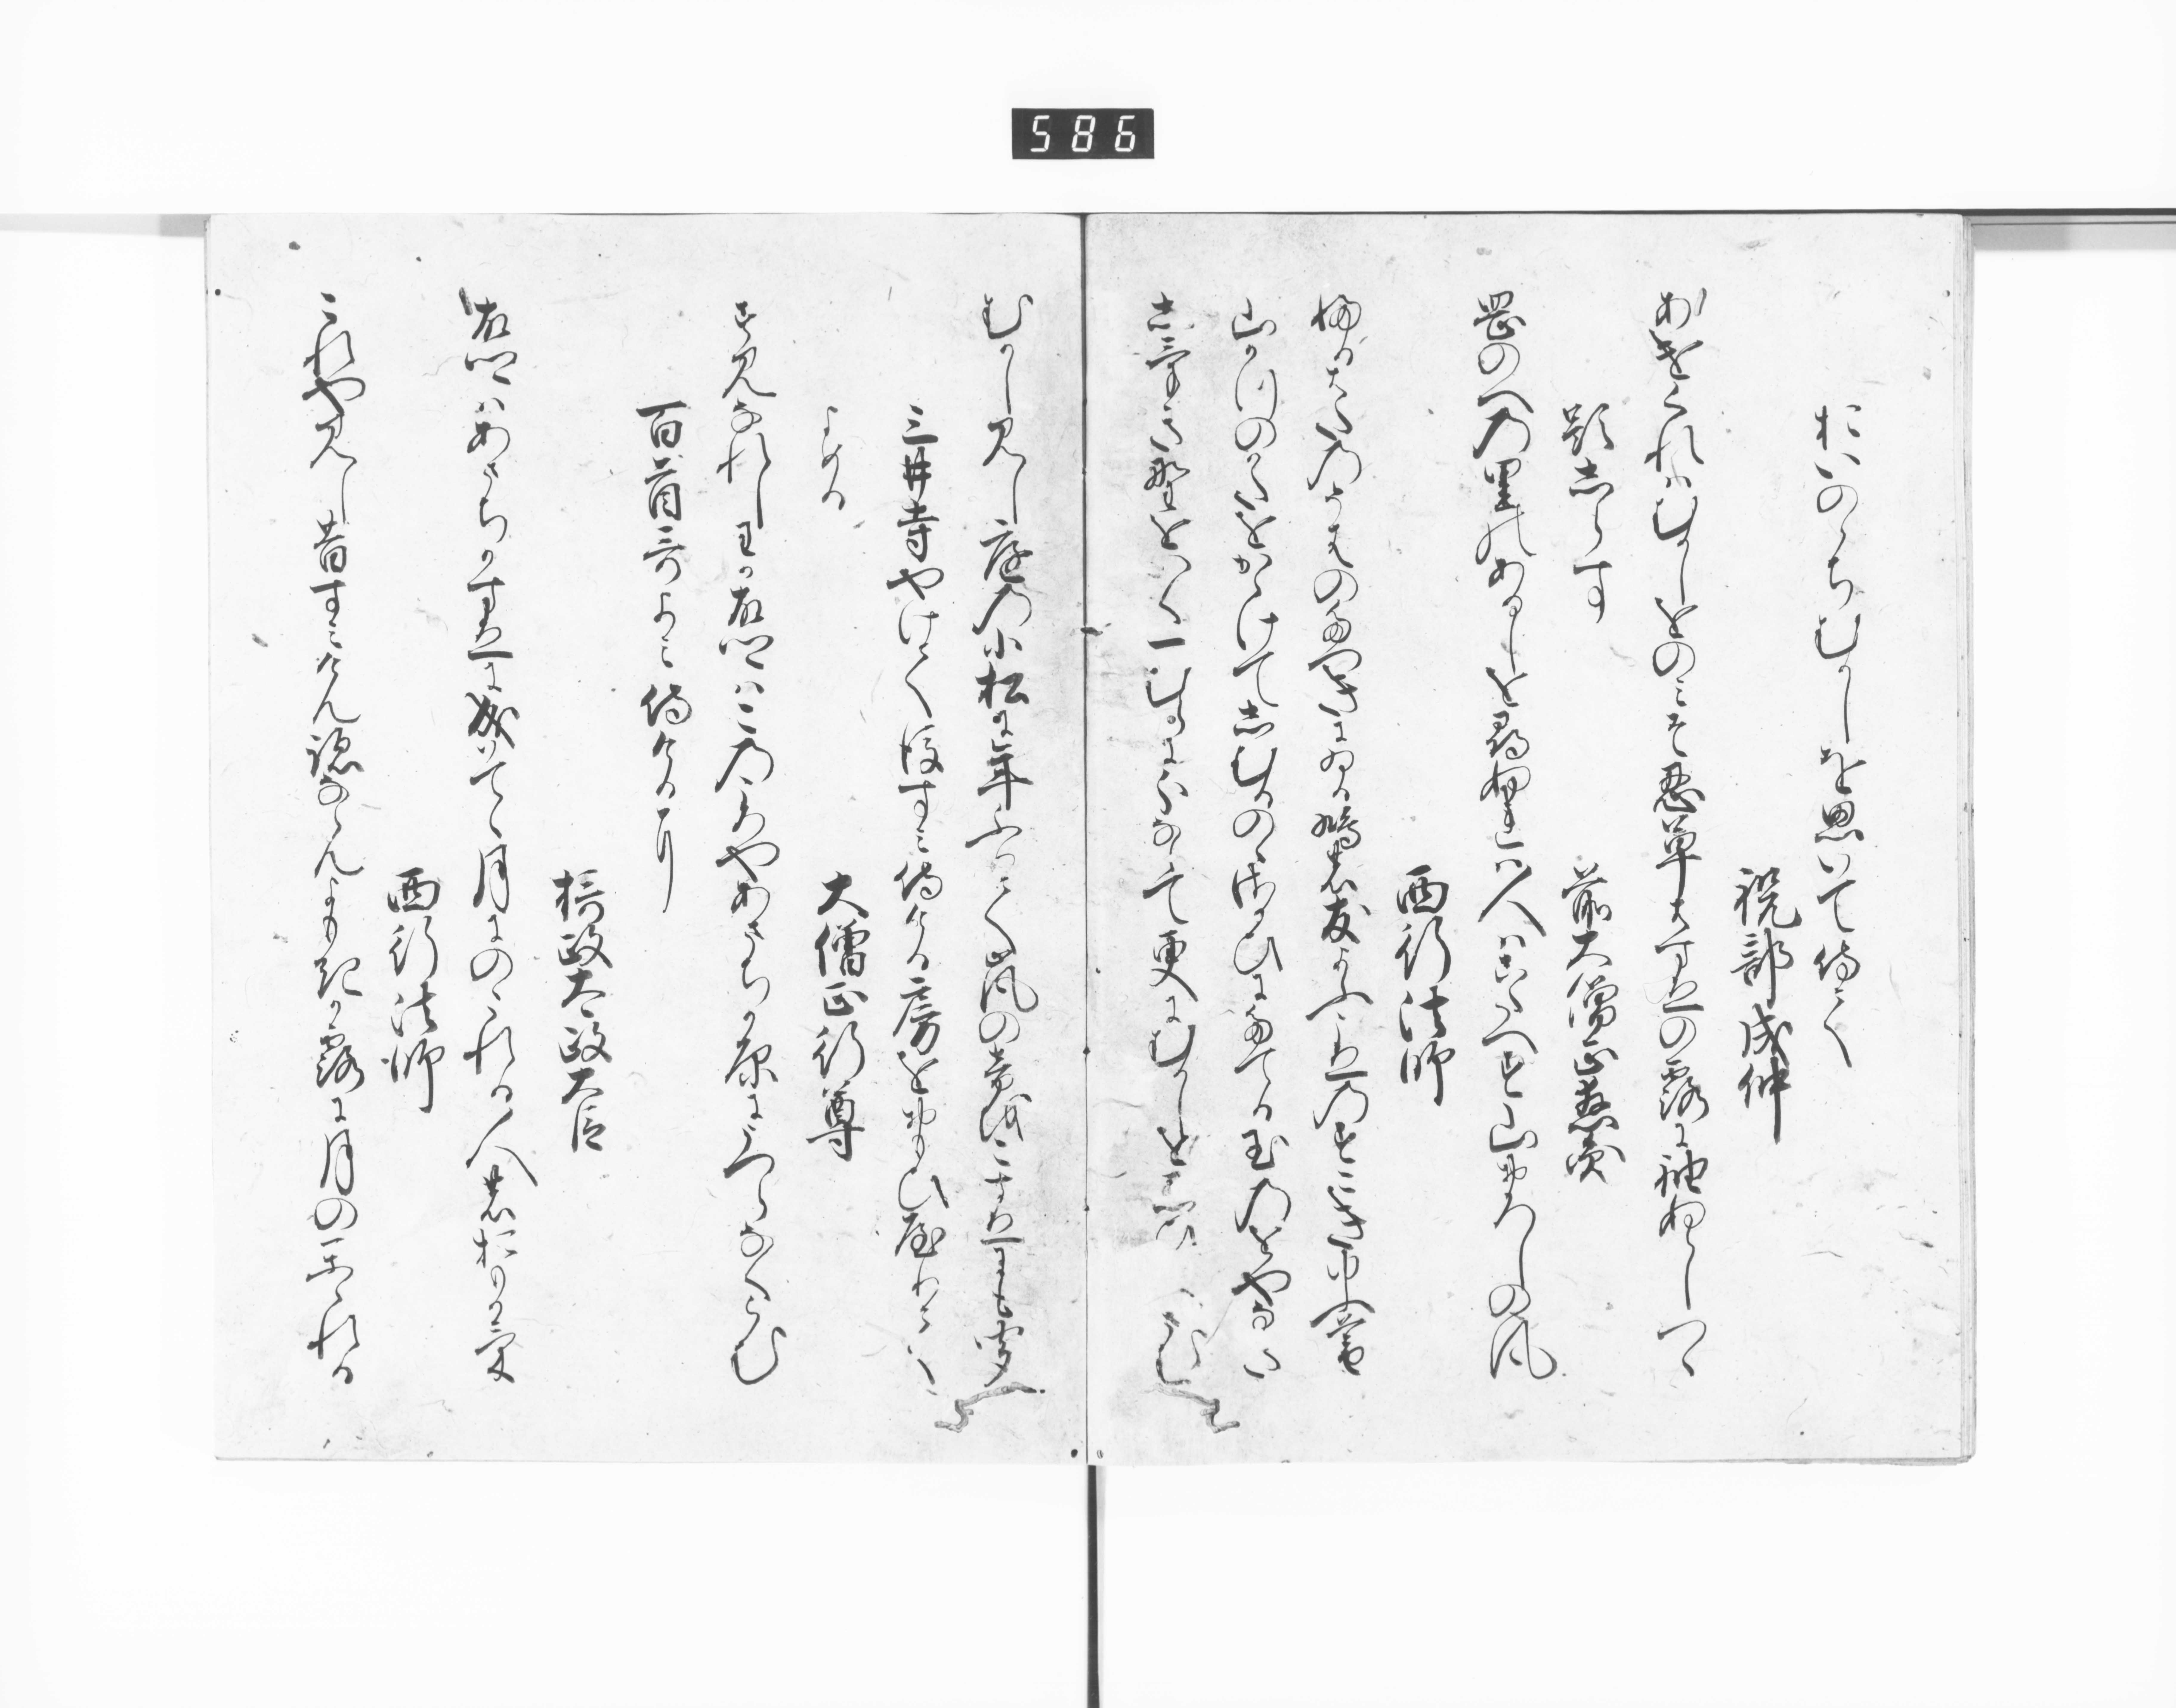 586
おいのゝちむかしを思いて侍て
祝部成仲
あけくれはむかしをのみそ忍草はすゑの露に袖ぬらしつゝ
題しらす
前大僧正慈円
岡のへの里のあるしを尋ぬれは人はこたへす山おろしの風
西行法師
ふるはたのそはのたつ木にゐる鳩の友よふこゑのすこき夕暮
山かつのかたをかかけてしむるのゝさかひにたてる玉のを柳
しけき野をいく一むらにわけなして更にむかしを忍ひかへさむ
むかし見し庭の小松に年ふりて嵐の音をこすゑにそ聞
三井寺やけて後すみ侍ける房を思ひ屋りて
よめる
大僧正行尊
すみなれしわか故郷はこの比やあさちか原にうつらなくらむ
百首哥よみ侍けるに
摂政太政大臣
故郷はあさちかすゑに成はてゝ月にのこれる人の面かけ
西行法師
これや見し昔すみけん跡ならんよもきか露に月のかゝれる